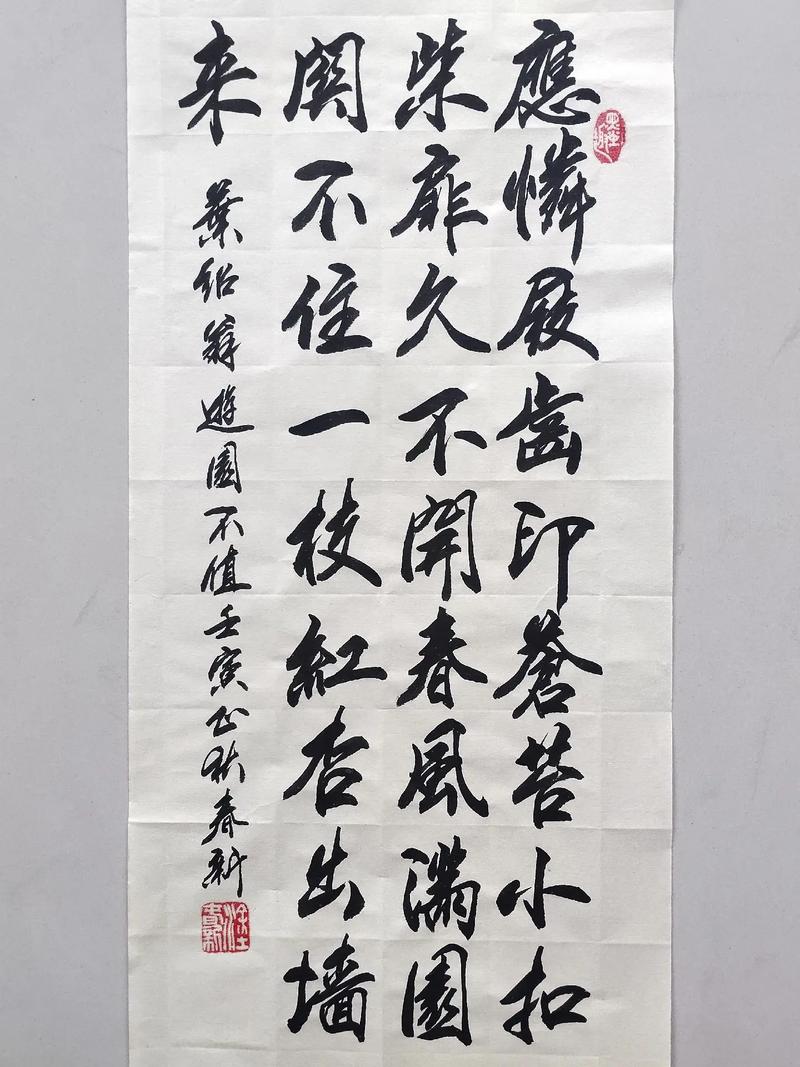 應憐屐齒印蒼苔小扣
柴扉久不開春風滿園
関不住一枝紅杏出墙
来
葉紹翁遊園不值壬寅正秋春新